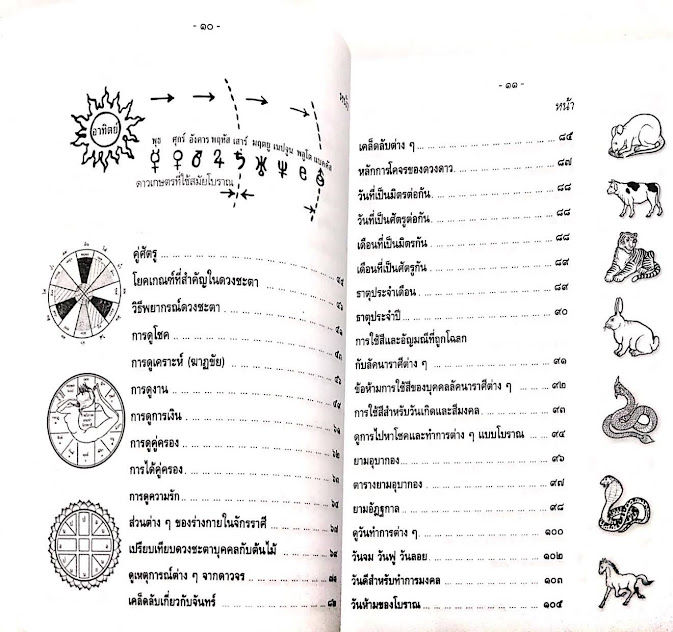 - ๑๐ -
อาทิตย์
พุธ ศุกร์ อังคาร พฤหัส เสาร์ มฤตยู เนปจูน พลูโต แบคคัส
ดาวเกษตรที่ใช้สมัยโบราณ
คู่ศัตรู
โยคเกณฑ์ที่สำคัญในดวงชะตา
วิธีพยากรณ์ดวงชะตา
การดูโชค
การดูเคราะห์ (ฆาฏชัย)
การดูงาน
การดูการเงิน ๖๑
การดูคู่ครอง ๖๒
การได้คู่ครอง ๖๓
การดูความรัก
ส่วนต่าง ๆ ของร่างกายในจักรราศี ๖๗
เปรียบเทียบดวงชะตาบุคคลกับต้นไม้
ดูเหตุการณ์ต่าง ๆ จากดาวจร
เคล็ดลับเกี่ยวกับจันทร์
- ๑๑ -
หน้า
เคล็ดลับต่าง ๆ ๘๕
หลักการโคจรของดวงดาว ๘๗
วันที่เป็นมิตรต่อกัน ๘๘
วันที่เป็นศัตรูต่อกัน ๘๘
เดือนที่เป็นมิตรกัน ๘๘
เดือนที่เป็นศัตรูกัน ๘๙
ธาตุประจำเดือน ๘๙
ธาตุประจำปี ๙๐
การใช้สีและอัญมณีที่ถูกโฉลก
กับลัคนาราศีต่าง ๆ ๙๑
ข้อห้ามการใช้สีของบุคคลลัคนาราศีต่าง ๆ ๙๒
การใช้สีสำหรับวันเกิดและสีมงคล ๙๓
ดูการไปหาโชคและทำการต่าง ๆ แบบโบราณ ๙๔
ยามอุบากอง ๙๖
ตารางยามอุบากอง ๙๗
ยามอัฏฐกาล ๙๘
ดูวันทำการต่าง ๆ ๑๐๐
วันจม วันฟู วันลอย ๑๐๒
วันดีสำหรับทำการมงคล ๑๐๓
วันห้ามของโบราณ ๑๐๕